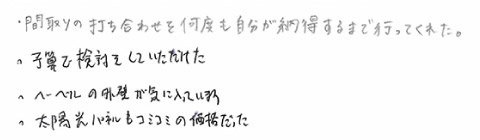 ・間取りの打ち合わせを何度も自分が納得するまで行ってくれた。
・予算で検討をしていただけた
・ヘーベルの外壁が気に入っている
・太陽光パネルもコミコミの価格だった